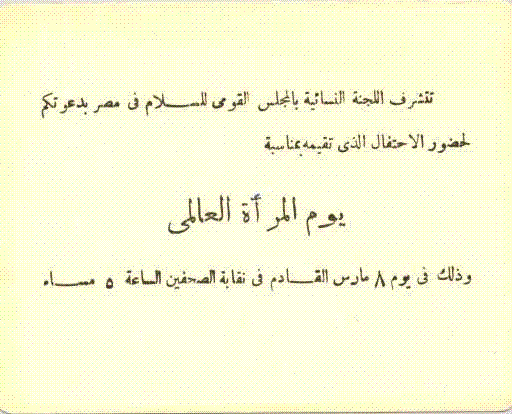 تتشرف اللجنة النسائية بالمجلس القومى للسلام فى مصر بدعوتكم
لحضور الاحتفال الذى تقيمه بمناسبة
يوم المرأة العالمى
وذلك فى يوم ٨ مارس القادم فى نقابة الصحفين الساعة ٥ مساء